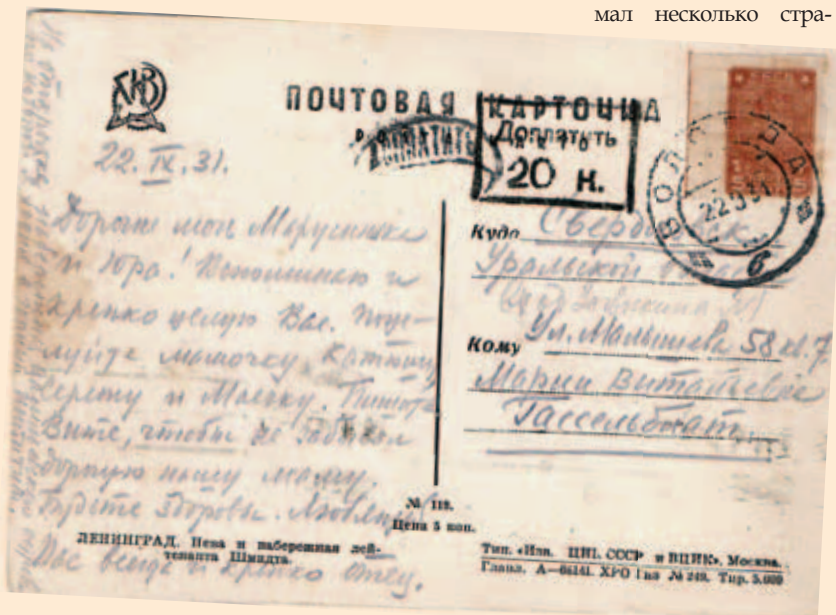 мал несколько стра-
ПОЧТОВАЯ КАРТОЧКА
ДОПЛАТИТЬ
Доплатить
20 к.
ВОЛОГДА
22 9 31
6
22.IX.31.
Дорогие мои Марусинька
и Юра! Вспоминаю и
крепко целую Вас. Поце-
луйте мамочку, Катюшу
Сережу и Маечку. Пишите
Вите, чтобы не забывал
дорогую нашу маму.
Будьте здоровы. Любящий
Вас всегда и крепко отец.
Куда Свердловск
Уральской
Кому Ул. Малышева 58 кв. 7
Марии Витальевне
Гассельблат
№ 118.
Цена 5 коп.
ЛЕНИНГРАД. Нева и набережная лей-
тенанта Шмидта.
Тип. «Изв. ЦИК СССР и ВЦИК», Москва.
Главл. А—64141. ХРО Гиз № 249. Тир. 5.000